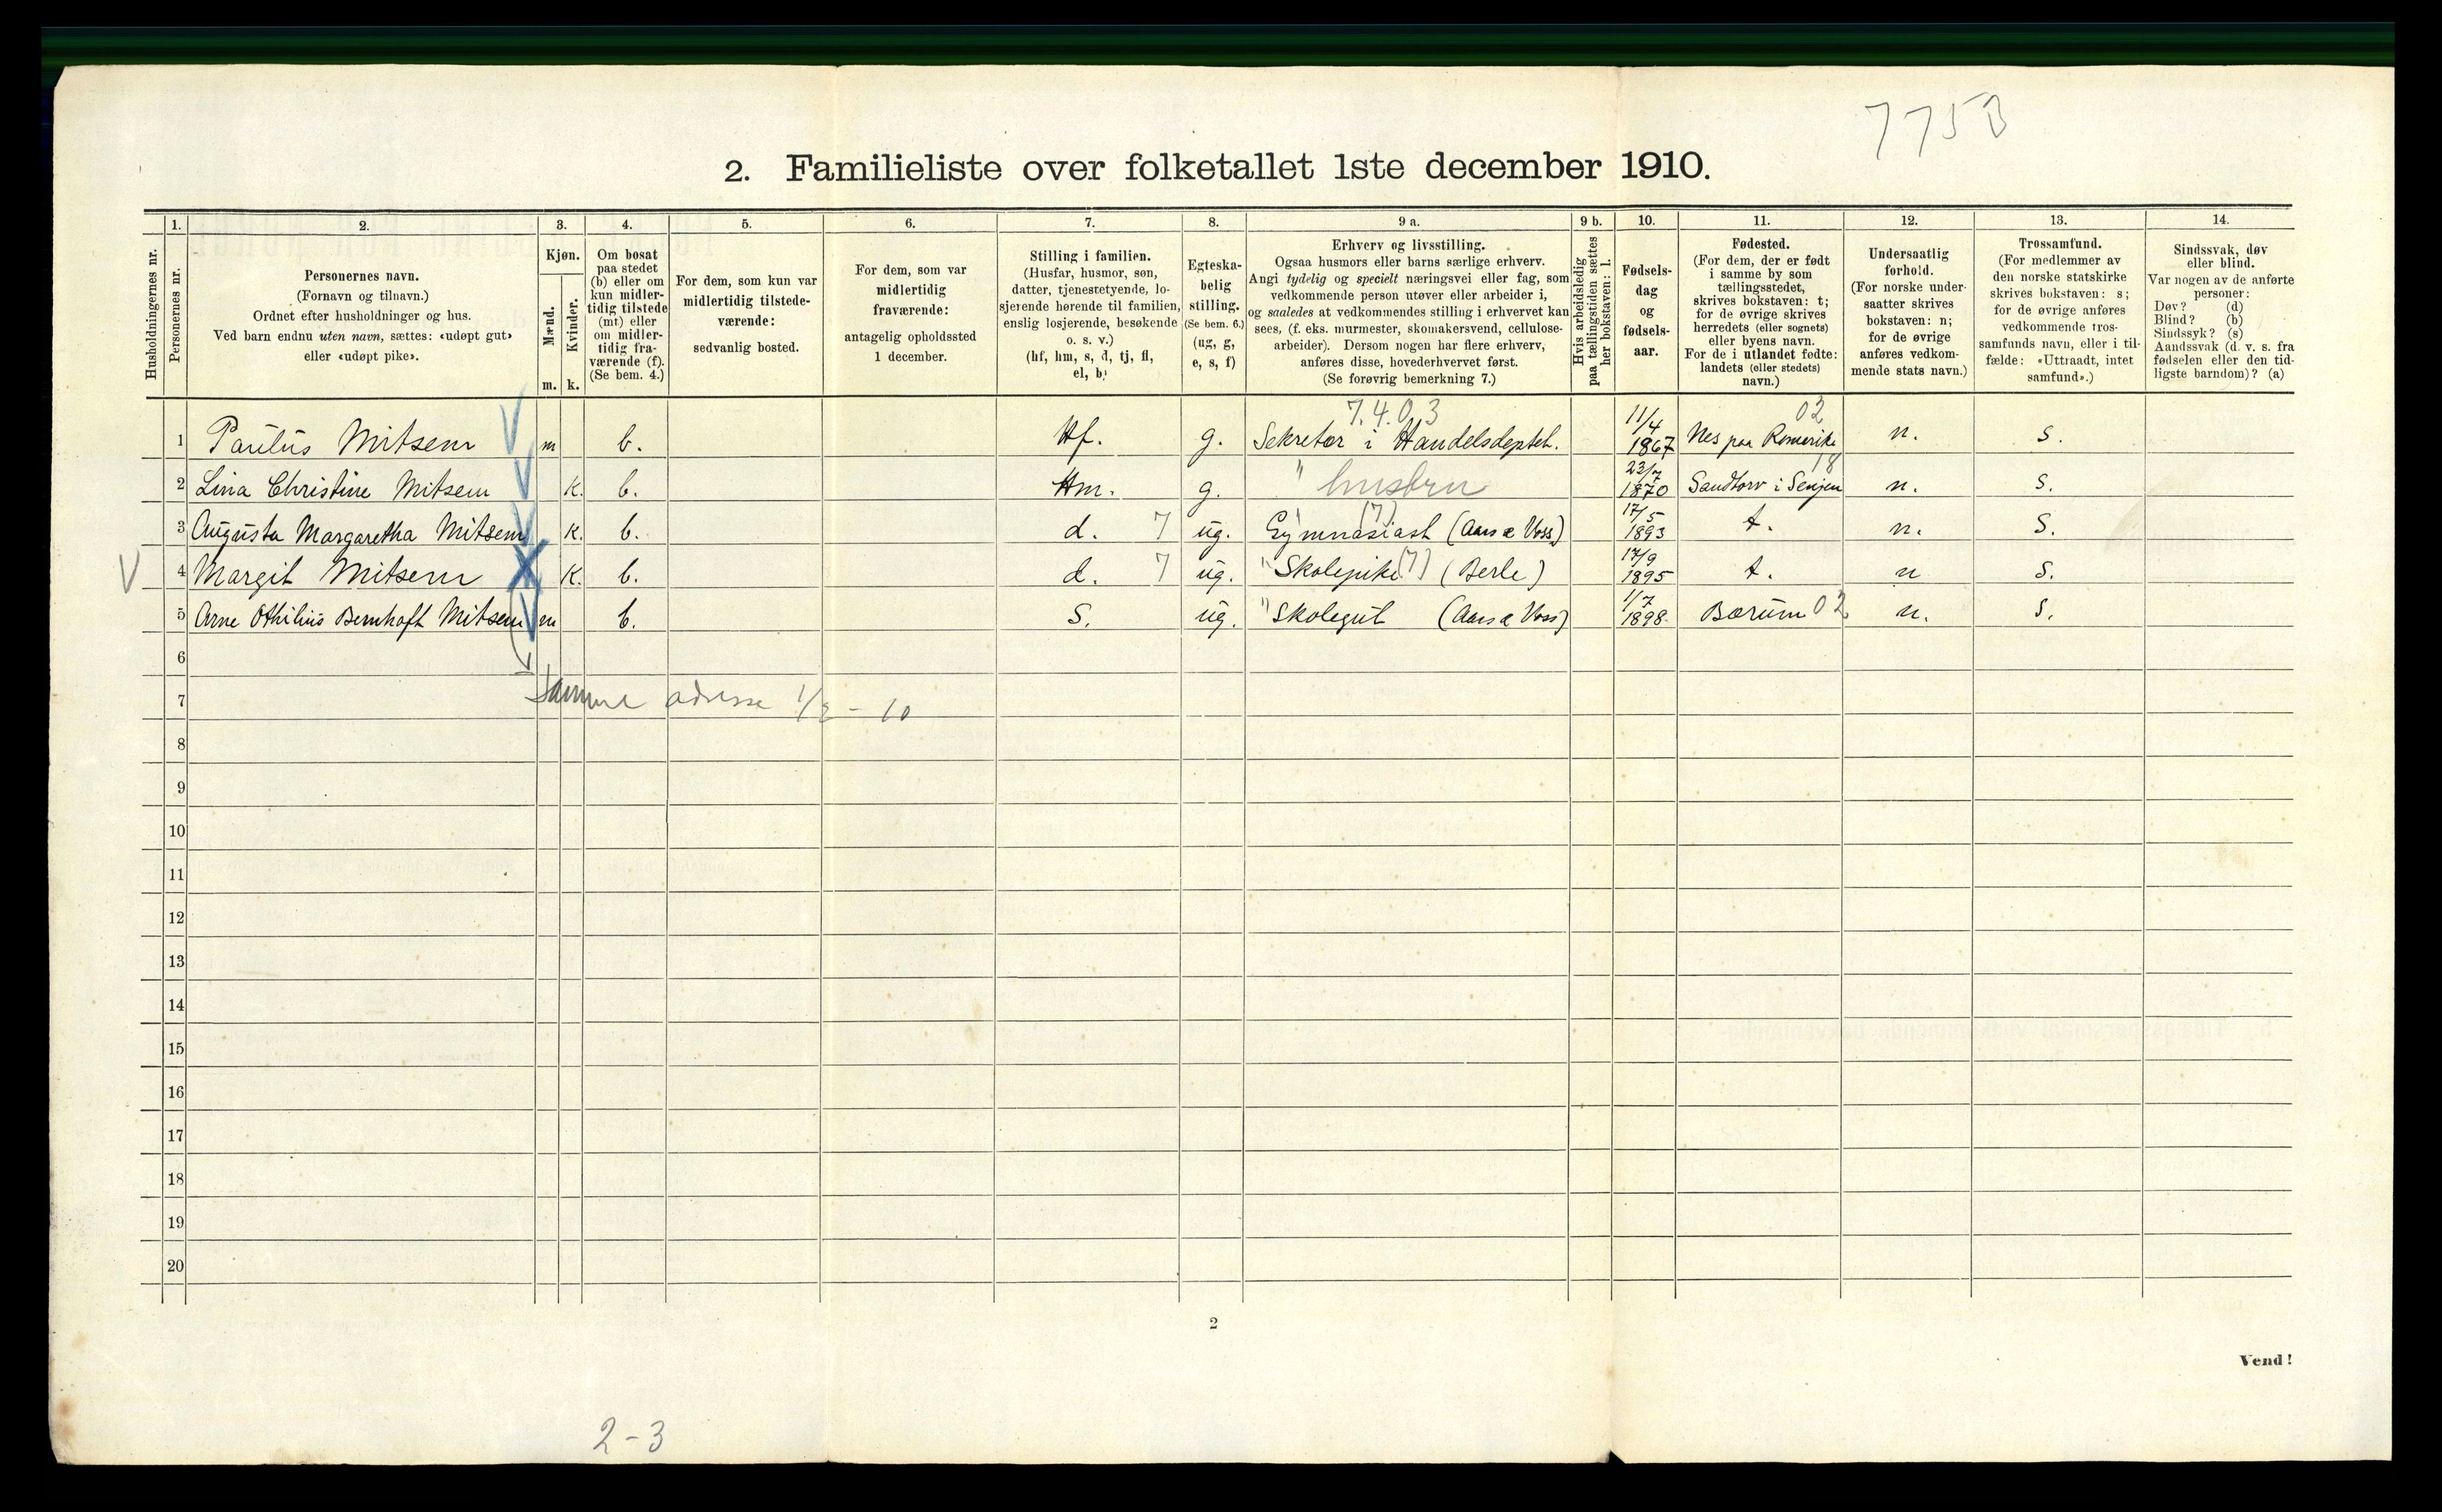 7753
2. Familieliste over folketallet 1ste december 1910.
Husholdningernes nr.
1.
Personernes nr.
2.
Personernes navn.
(Fornavn og tilnavn.)
Ordnet efter husholdninger og hus.
Ved barn endnu uten navn, sættes: «udøpt gut»
eller «udøpt pike».
3.
Kjøn.
Mænd.
Kvinder.
m. k.
4.
Om bosat
paa stedet
(b) eller om
kun midler-
tidig tilstede
(mt) eller
om midler-
tidig fra-
værende (f).
(Se bem. 4.)
5.
For dem, som kun var
midlertidig tilstede-
værende:
sedvanlig bosted.
6.
For dem, som var
midlertidig
fraværende:
antagelig opholdssted
1 december.
7.
Stilling i familien.
(Husfar, husmor, søn,
datter, tjenestetyende, lo-
sjerende hørende til familien,
enslig losjerende, besøkende
o. s. v.)
(hf, hm, s, d, tj, fl,
el, b)
8.
Egteska-
belig
stilling.
(Se bem. 6.)
(ug, g,
e, s, f)
9 a.
Erhverv og livsstilling.
Ogsaa husmors eller barns særlige erhverv.
Angi tydelig og specielt næringsvei eller fag, som
vedkommende person utøver eller arbeider i,
og saaledes at vedkommendes stilling i erhvervet kan
sees, (f. eks. murmester, skomakersvend, cellulose-
arbeider). Dersom nogen har flere erhverv,
anføres disse, hovederhvervet først.
(Se forøvrig bemerkning 7.)
9 b.
Hvis arbeidsledig
paa tællingstiden sættes
her bokstaven: l.
10.
Fødsels-
dag
og
fødsels-
aar.
11.
Fødested.
(For dem, der er født
i samme by som
tællingsstedet,
skrives bokstaven: t;
for de øvrige skrives
herredets (eller sognets)
eller byens navn.
For de i utlandet fødte:
landets (eller stedets)
navn.)
12.
Undersaatlig
forhold.
(For norske under-
saatter skrives
bokstaven: n;
for de øvrige
anføres vedkom-
mende stats navn.)
13.
Trossamfund.
(For medlemmer av
den norske statskirke
skrives bokstaven: s;
for de øvrige anføres
vedkommende tros-
samfunds navn, eller i til-
fælde: «Uttraadt, intet
samfund».)
14.
Sindssvak, døv
eller blind.
Var nogen av de anførte
personer:
Døv? (d)
Blind? (b)
Sindssyk? (s)
Aandssvak (d. v. s. fra
fødselen eller den tid-
ligste barndom)? (a)
7.4.03 02
1 Paulus Mitsem m b. Hf. g. Sekretær i Handelsdeptet. 11/4 1867 Nes paa Romerike n. s.
18
2 Lina Christine Mitsem K. b. Hm. g. " husfru 23/7 1870 Sandtorv i Senjen n. s.
3 Augusta Margaretha Mitsem K. b. d. 7 ug. Gymnasiast (7) (Aars & Voss) 17/5 1893 t. n. s.
4 Margit Mitsem K. b. d. 7 ug. " Skolepike (7) (Berle) 17/9 1895 t. n s.
5 Arne Othilius Bernhoft Mitsem m b. S. ug. " Skolegut (Aars & Voss) 1/7 1898 Bærum 02 n. s.
6
7 Samme adresse 1/2 - 10
8
9
10
11
12
13
14
15
16
17
18
19
20
2
Vend!
2-3